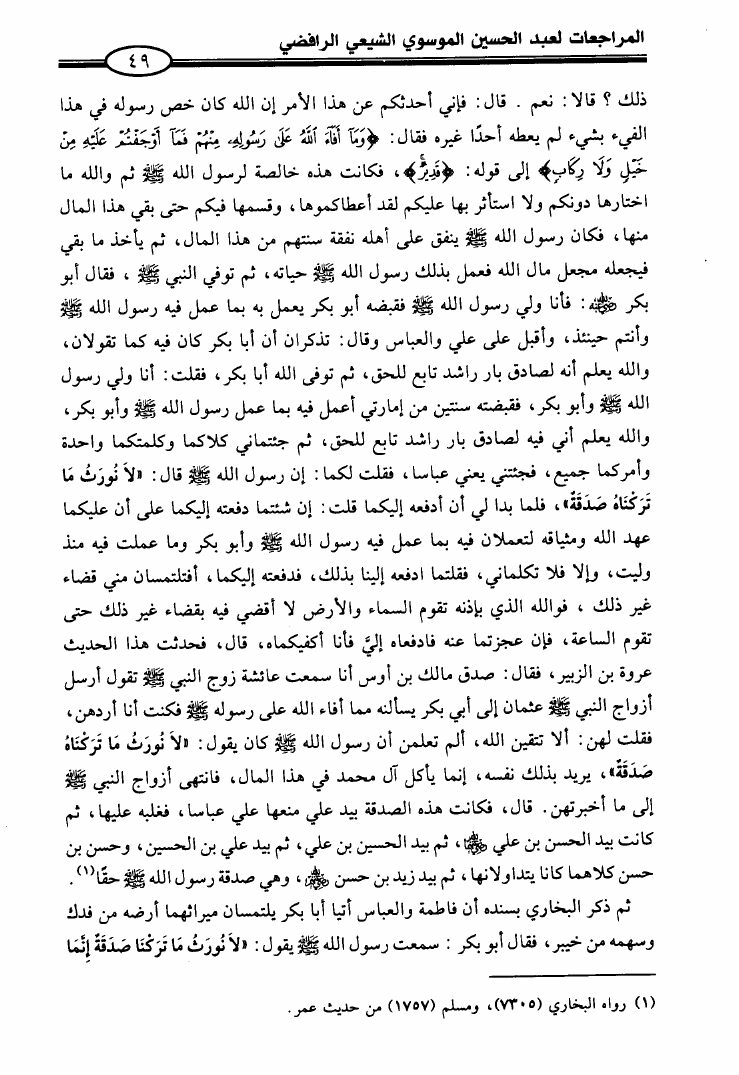 المراجعات لعبد الحسين الموسوي الشيعي الرافضي
٤٩
ذلك ؟ قالا: نعم . قال: فإني أحدثكم عن هذا الأمر إن الله كان خص رسوله في هذا
الفيء بشيء لم يعطه أحدًا غيره فقال: ﴿وَمَآ أَفَآءَ ٱللَّهُ عَلَىٰ رَسُولِهِۦ مِنْهُمْ فَمَآ أَوْجَفْتُمْ عَلَيْهِ مِنْ
خَيْلٍ وَلَا رِكَابٍ﴾ إلى قوله: ﴿قَدِيرٌ﴾، فكانت هذه خالصة لرسول الله ﷺ ثم والله ما
اختارها دونكم ولا استأثر بها عليكم لقد أعطاكموها، وقسمها فيكم حتى بقي هذا المال
منها، فكان رسول الله ﷺ ينفق على أهله نفقة سنتهم من هذا المال، ثم يأخذ ما بقي
فيجعله مجعل مال الله فعمل بذلك رسول الله ﷺ حياته، ثم توفي النبي ﷺ ، فقال أبو
بكر رضي الله عنه: فأنا ولي رسول الله ﷺ فقبضه أبو بكر يعمل به بما عمل فيه رسول الله ﷺ
وأنتم حينئذ، وأقبل على علي والعباس وقال: تذكران أن أبا بكر كان فيه كما تقولان،
والله يعلم أنه لصادق بار راشد تابع للحق، ثم توفى الله أبا بكر، فقلت: أنا ولي رسول
الله ﷺ وأبو بكر، فقبضته سنتين من إمارتي أعمل فيه بما عمل رسول الله ﷺ وأبو بكر،
والله يعلم أني فيه لصادق بار راشد تابع للحق، ثم جئتماني كلاكما وكلمتكما واحدة
وأمركما جميع، فجئتني يعني عباسا، فقلت لكما: إن رسول الله ﷺ قال: «لاَ نُورَثُ مَا
تَرَكْنَاهُ صَدَقَةٌ»، فلما بدا لي أن أدفعه إليكما قلت: إن شئتما دفعته إليكما على أن عليكما
عهد الله ومثياقه لتعملان فيه بما عمل فيه رسول الله ﷺ وأبو بكر وما عملت فيه منذ
وليت، وإلا فلا تكلماني، فقلتما ادفعه إلينا بذلك، فدفعته إليكما، أفتلتمسان مني قضاء
غير ذلك ، فوالله الذي بإذنه تقوم السماء والأرض لا أقضي فيه بقضاء غير ذلك حتى
تقوم الساعة، فإن عجزتما عنه فادفعاه إليَّ فأنا أكفيكماه، قال، فحدثت هذا الحديث
عروة بن الزبير، فقال: صدق مالك بن أوس أنا سمعت عائشة زوج النبي ﷺ تقول أرسل
أزواج النبي ﷺ عثمان إلى أبي بكر يسألنه مما أفاء الله على رسوله ﷺ فكنت أنا أردهن،
فقلت لهن: ألا تتقين الله، ألم تعلمن أن رسول الله ﷺ كان يقول: «لاَ نُورَثُ مَا تَرَكْنَاهُ
صَدَقَةٌ»، يريد بذلك نفسه، إنما يأكل آل محمد في هذا المال، فانتهى أزواج النبي ﷺ
إلى ما أخبرتهن. قال، فكانت هذه الصدقة بيد علي منعها علي عباسا، فغلبه عليها، ثم
كانت بيد الحسن بن علي، ثم بيد الحسين بن علي، ثم بيد علي بن الحسين، وحسن بن
حسن كلاهما كانا يتداولانها، ثم بيد زيد بن حسن، وهي صدقة رسول الله ﷺ حقًا(١).
ثم ذكر البخاري بسنده أن فاطمة والعباس أتيا أبا بكر يلتمسان ميراثهما أرضه من فدك
وسهمه من خيبر، فقال أبو بكر : سمعت رسول الله ﷺ يقول: «لاَ نُورَثُ مَا تَرَكْنَا صَدَقَةٌ إِنَّمَا
(١) رواه البخاري (٧٣٠٥)، ومسلم (١٧٥٧) من حديث عمر.